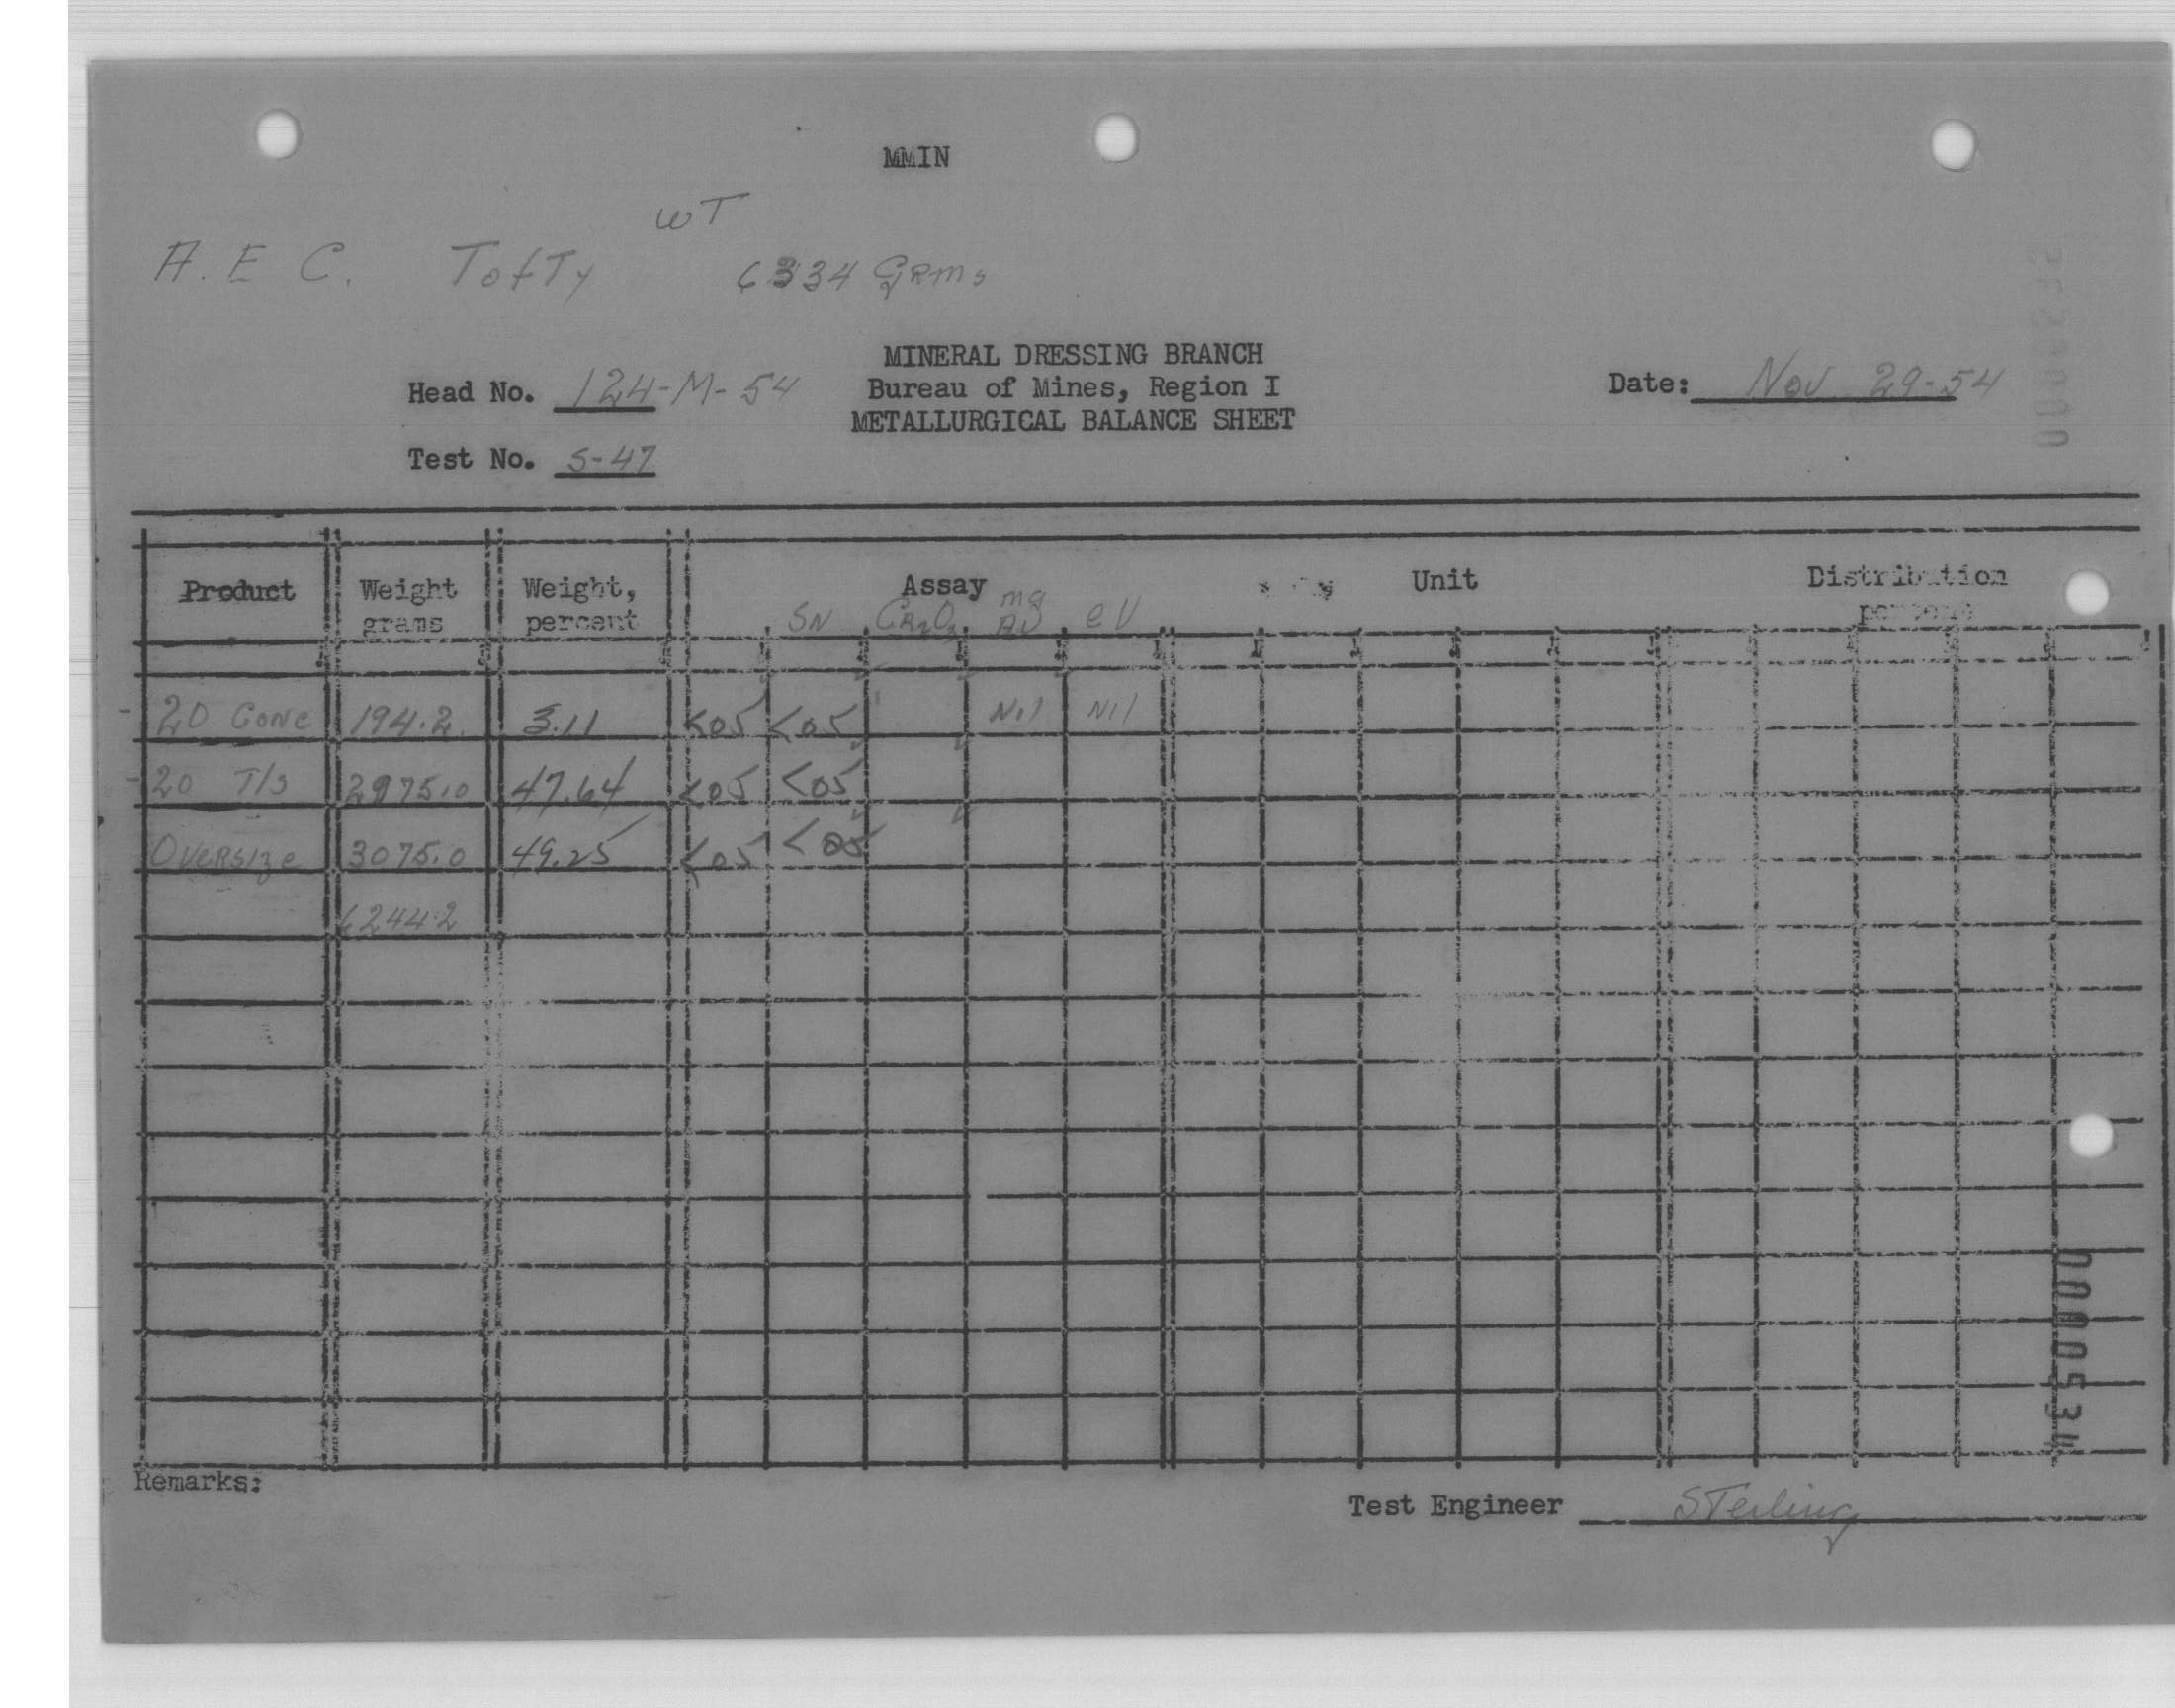 MMIN
WT
A. E C. Tofty 6334 GRMs
MINERAL DRESSING BRANCH
Head No. 124-M-54 Bureau of Mines, Region I Date: Nov 29-54
METALLURGICAL BALANCE SHEET
Test No. S-47
Product Weight grams Weight, percent Assay Unit Distribution percent
SN CR2O3 mg AU eU
-20 Conc 194.2 3.11 <05 <05 Nil Nil
-20 T/s 2975.0 47.64 <05 <05
Oversize 3075.0 49.25 <05 <05
6244.2
Remarks:
Test Engineer Sterling